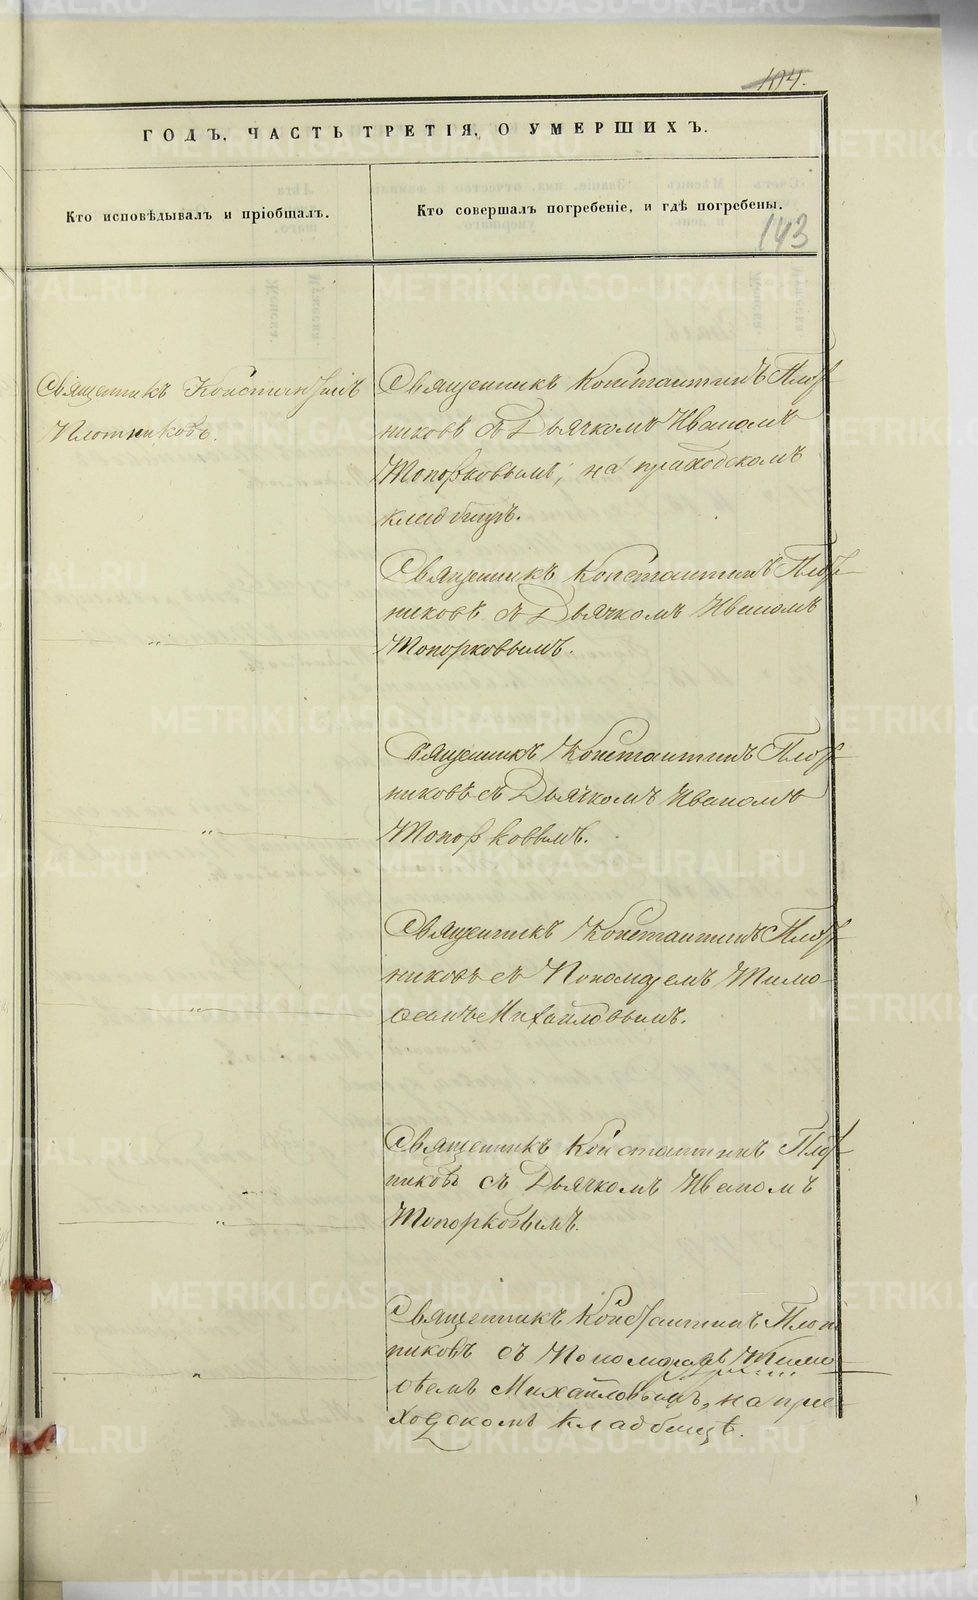 104.
ГОДЪ, ЧАСТЬ ТРЕТІЯ, О УМЕРШИХЪ.
Кто исповѣдывалъ и пріобщалъ.
Кто совершалъ погребеніе, и гдѣ погребены.
143
Священникъ Константинъ
Плотниковъ.
Священникъ Константинъ Плот
никовъ съ Дьячкомъ Иваномъ
Топорковымъ, на приходскомъ
кладбищѣ.
Священникъ Константинъ Плот-
никовъ съ Дьячкомъ Иваномъ
Топорковымъ.
„
Священникъ Константинъ Плот-
никовъ съ Дьячкомъ Иваномъ
Топорковымъ.
„
Священникъ Константинъ Плот-
никовъ съ Пономаремъ Тимо-
ѳеемъ Михайловымъ.
„
Священникъ Константинъ Плот-
никовъ съ Дьячкомъ Иваномъ
Топорковымъ.
„
Священникъ Константинъ Плот
никовъ съ Пономаремъ Тимо-
ѳеемъ Михайловымъ, на при-
ходскомъ кладбищѣ.
METRIKI.GASO-URAL.RU